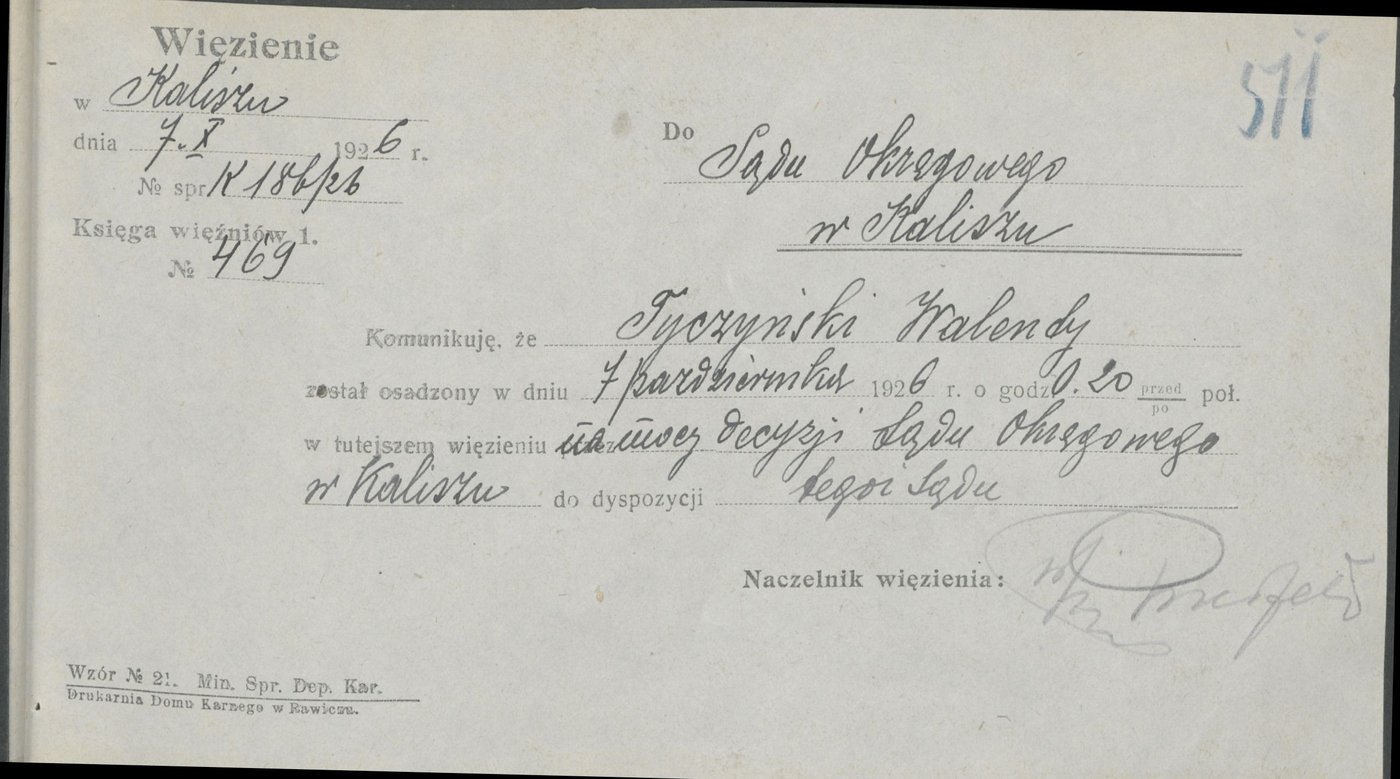 Więzienie
w Kaliszu
dnia 7. X 1926 r.
№ spr. K 186/26
Księga więźniów 1.
№ 469
511
Do Sądu Okręgowego
w Kaliszu
Komunikuję, że Tyczyński Walendy
został osadzony w dniu 7 października 1926 r. o godz 0.20 przed/po poł.
w tutejszem więzieniu na mocy decyzji Sądu Okręgowego
w Kaliszu do dyspozycji tegoż Sądu
Naczelnik więzienia:
Wzór № 21. Min. Spr. Dep. Kar.
Drukarnia Domu Karnego w Rawiczu.